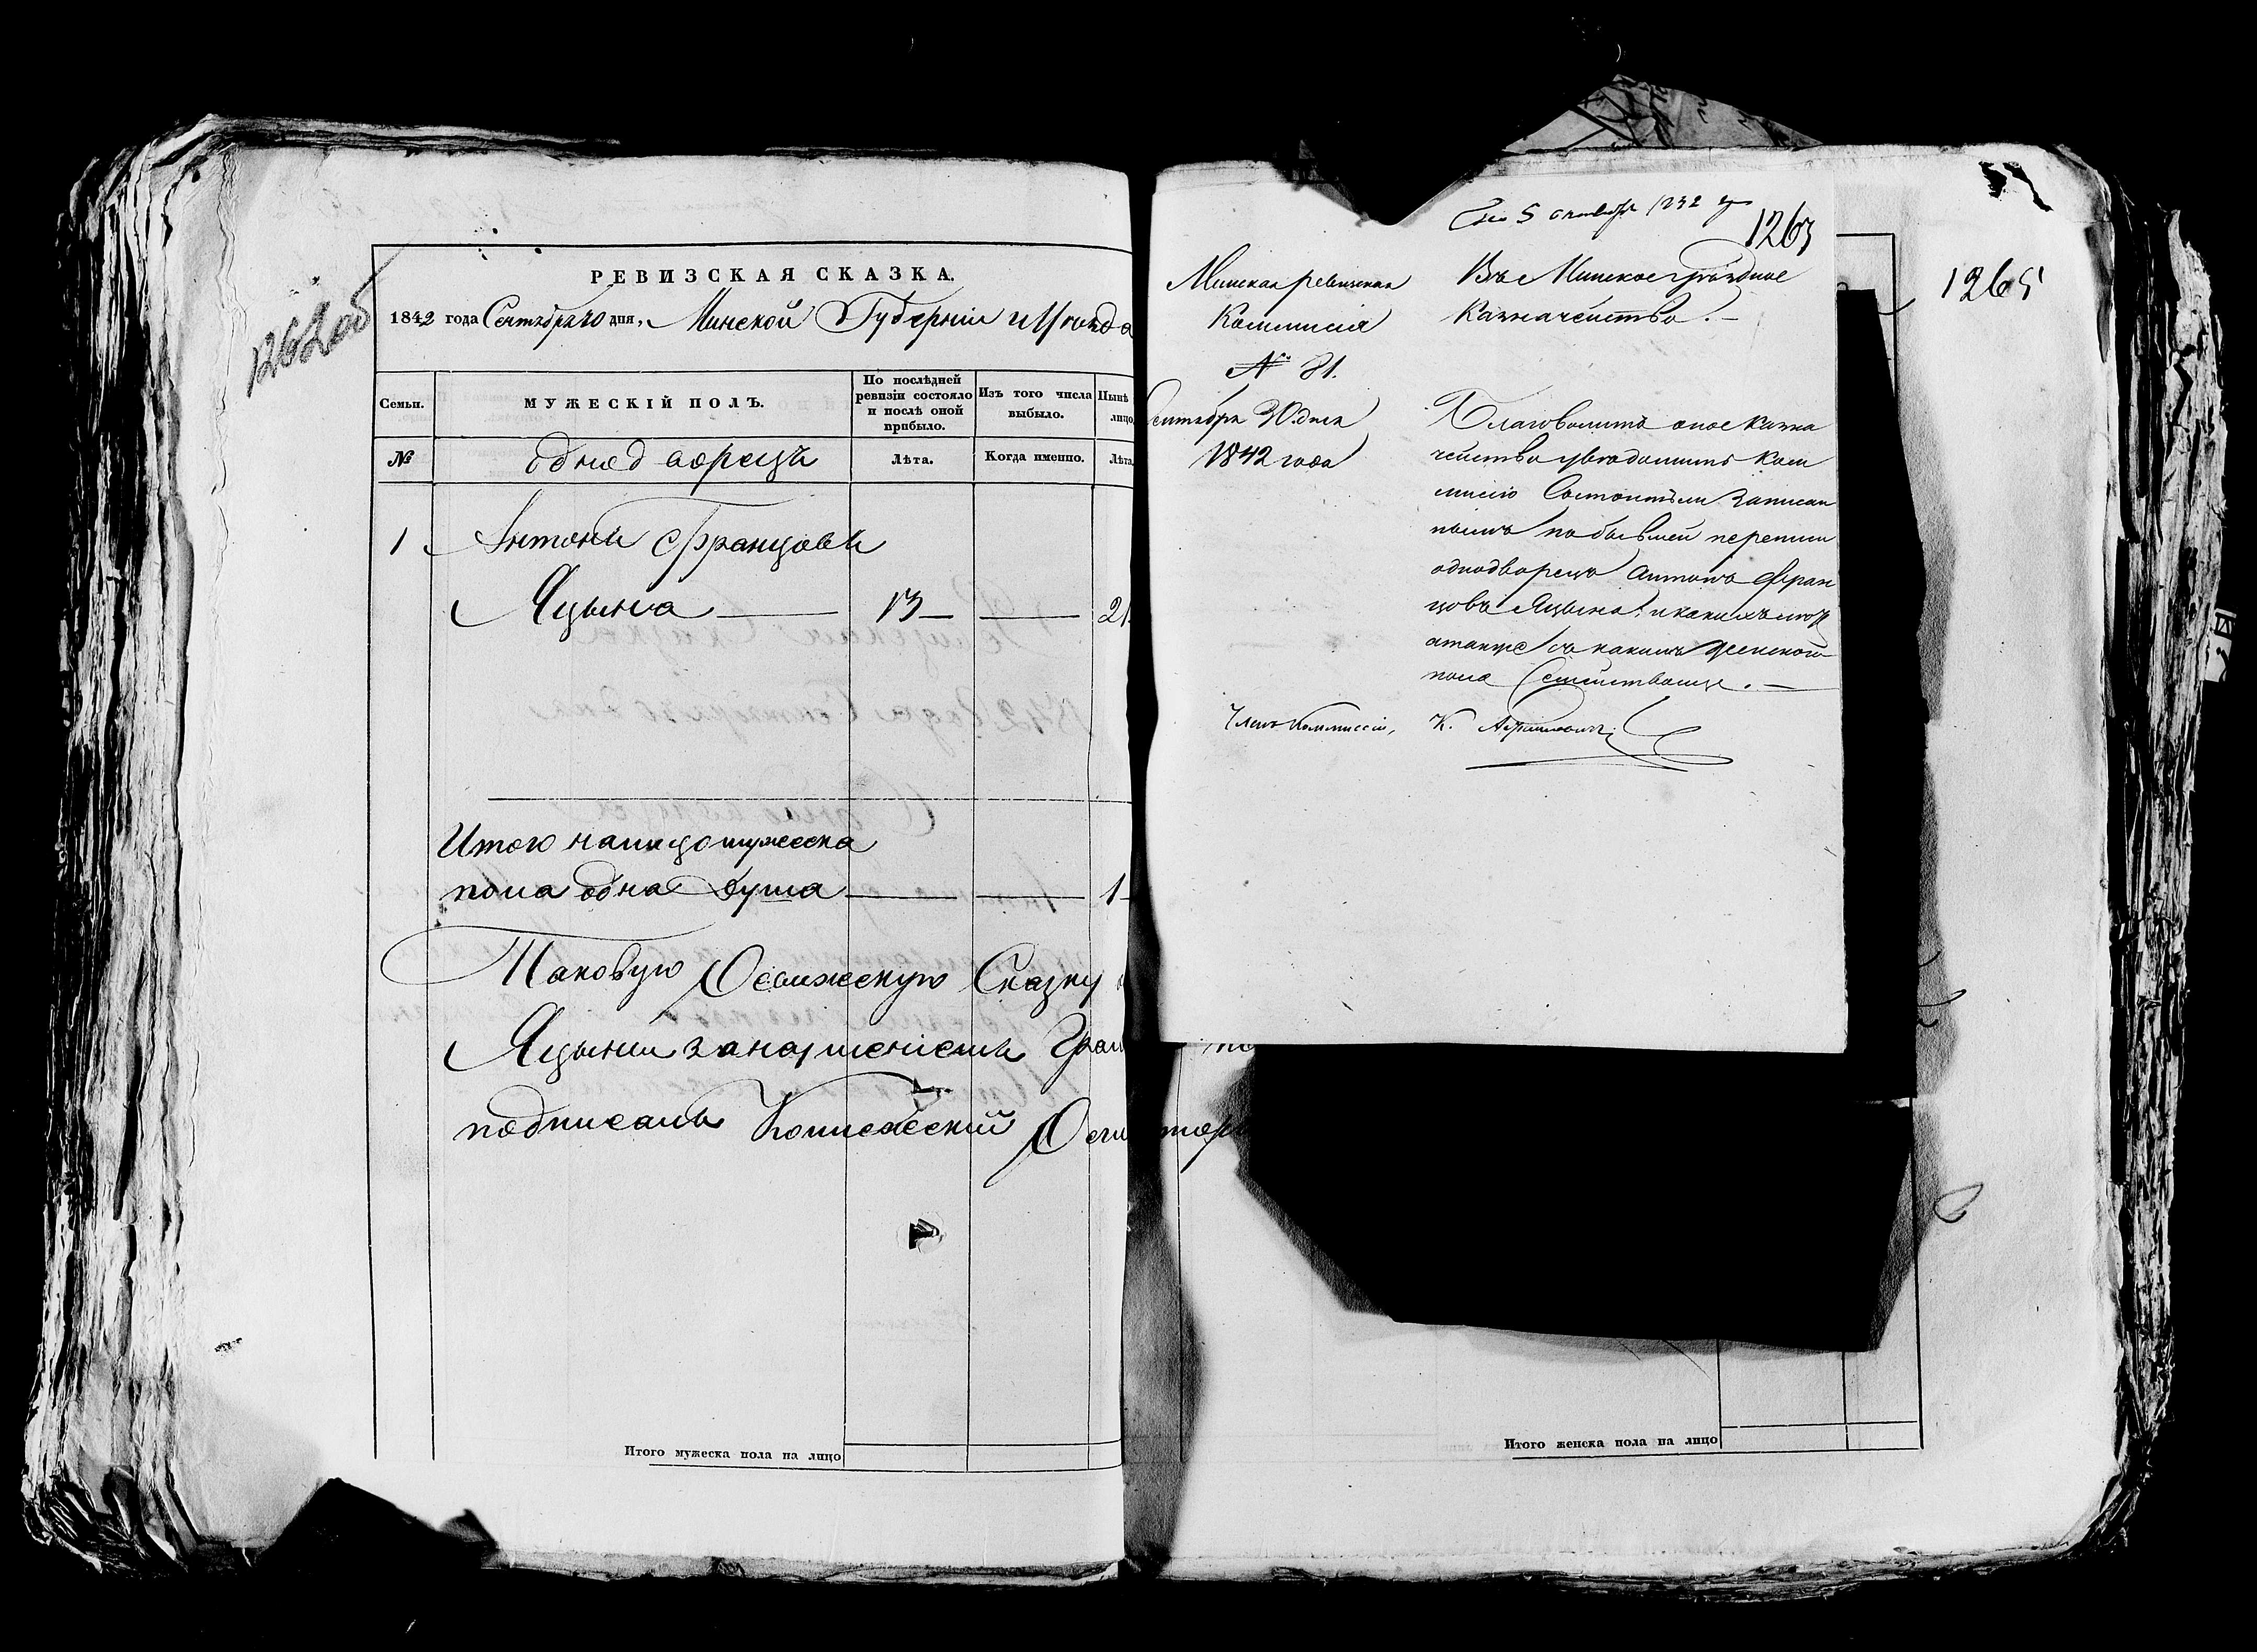 1262 об
РЕВИЗСКАЯ СКАЗКА.
1842 года Сентября 30 дня, Минской Губерніи и Уѣзда
Семьи.
МУЖЕСКІЙ ПОЛЪ.
По послѣдней ревизіи состояло и послѣ оной прибыло.
Изъ того числа выбыло.
Нынѣ лицо
№
однодворецъ
Лѣта.
Когда именно.
Лѣта
1 Антоній Францовъ
Яцына 13 21
Итого налицо мужеска
пола одна душа 1
Таковую Сказку
Яцыны Грам
подписалъ
Итого мужеска пола на лицо
5 октября
1263
Минская ревизская
Коммисія
№ 81.
Сентября 30 дня
1842 года
Въ Минское уѣздное
Казначейство.
Благоволитъ оное Казна
чейство увѣдомить Ком
мисію Состоитъ ли записан
нымъ по бывшей переписи
однодворецъ Антонъ Фран
цовъ Яцына, и какихъ лѣтъ
а также съ какимъ женскаго
пола Семействомъ.
Членъ Коммиссіи, К.
1265
Итого женска пола на лицо